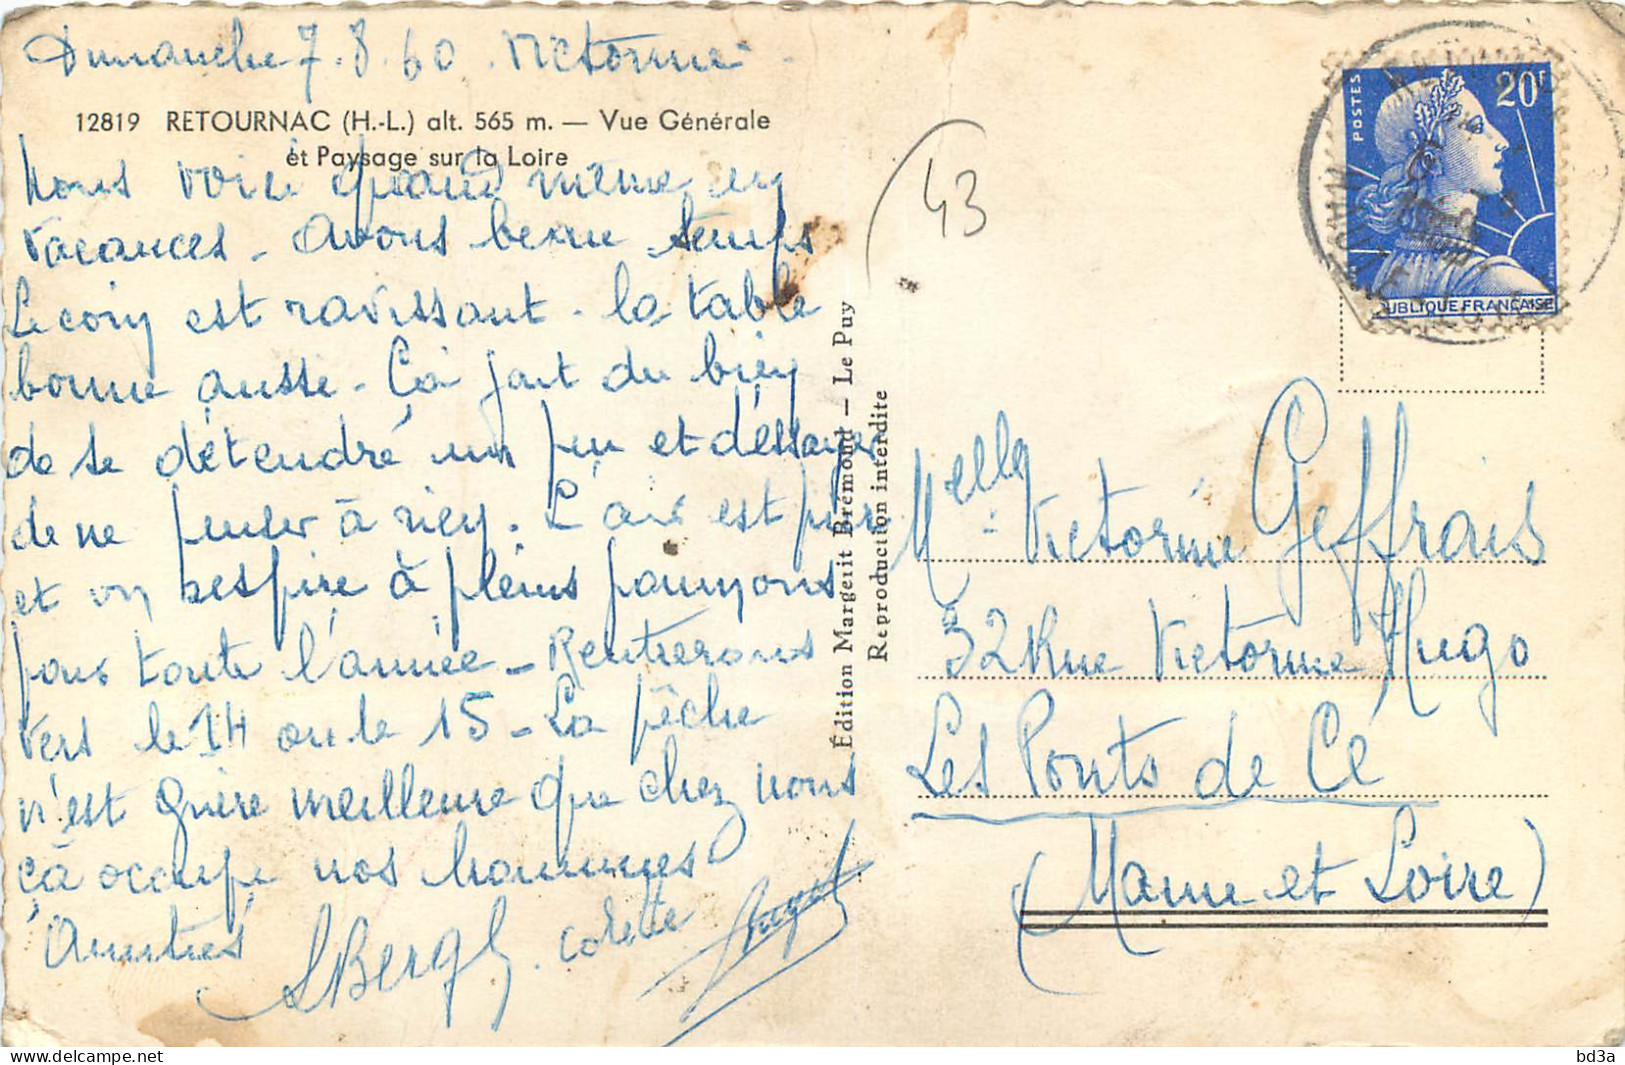 Dimanche 7.8.60. Victorine
12819 RETOURNAC (H.-L.) alt. 565 m. — Vue Générale
et Paysage sur la Loire
Nous voici quand même en
vacances - Avons beau temps
Le coin est ravissant - la table
bonne aussi - Ça fait du bien
de se détendre un peu et d'éssayer
de ne penser à rien. L'air est pur
et on respire à pleins poumons
pour toute l'année - Rentrerons
vers le 14 ou le 15 - La pêche
n'est guère meilleure que chez nous
ça occupe nos hommes
Amitiés
Colette
Édition Margerit Brémond — Le Puy
Reproduction interdite
43
POSTES
20F
RÉPUBLIQUE FRANÇAISE
Melle Victorine Geffrais
32 Rue Victorine Hugo
Les Ponts de Cé
(Maine et Loire)
bd3a
https://www.delcampe.net